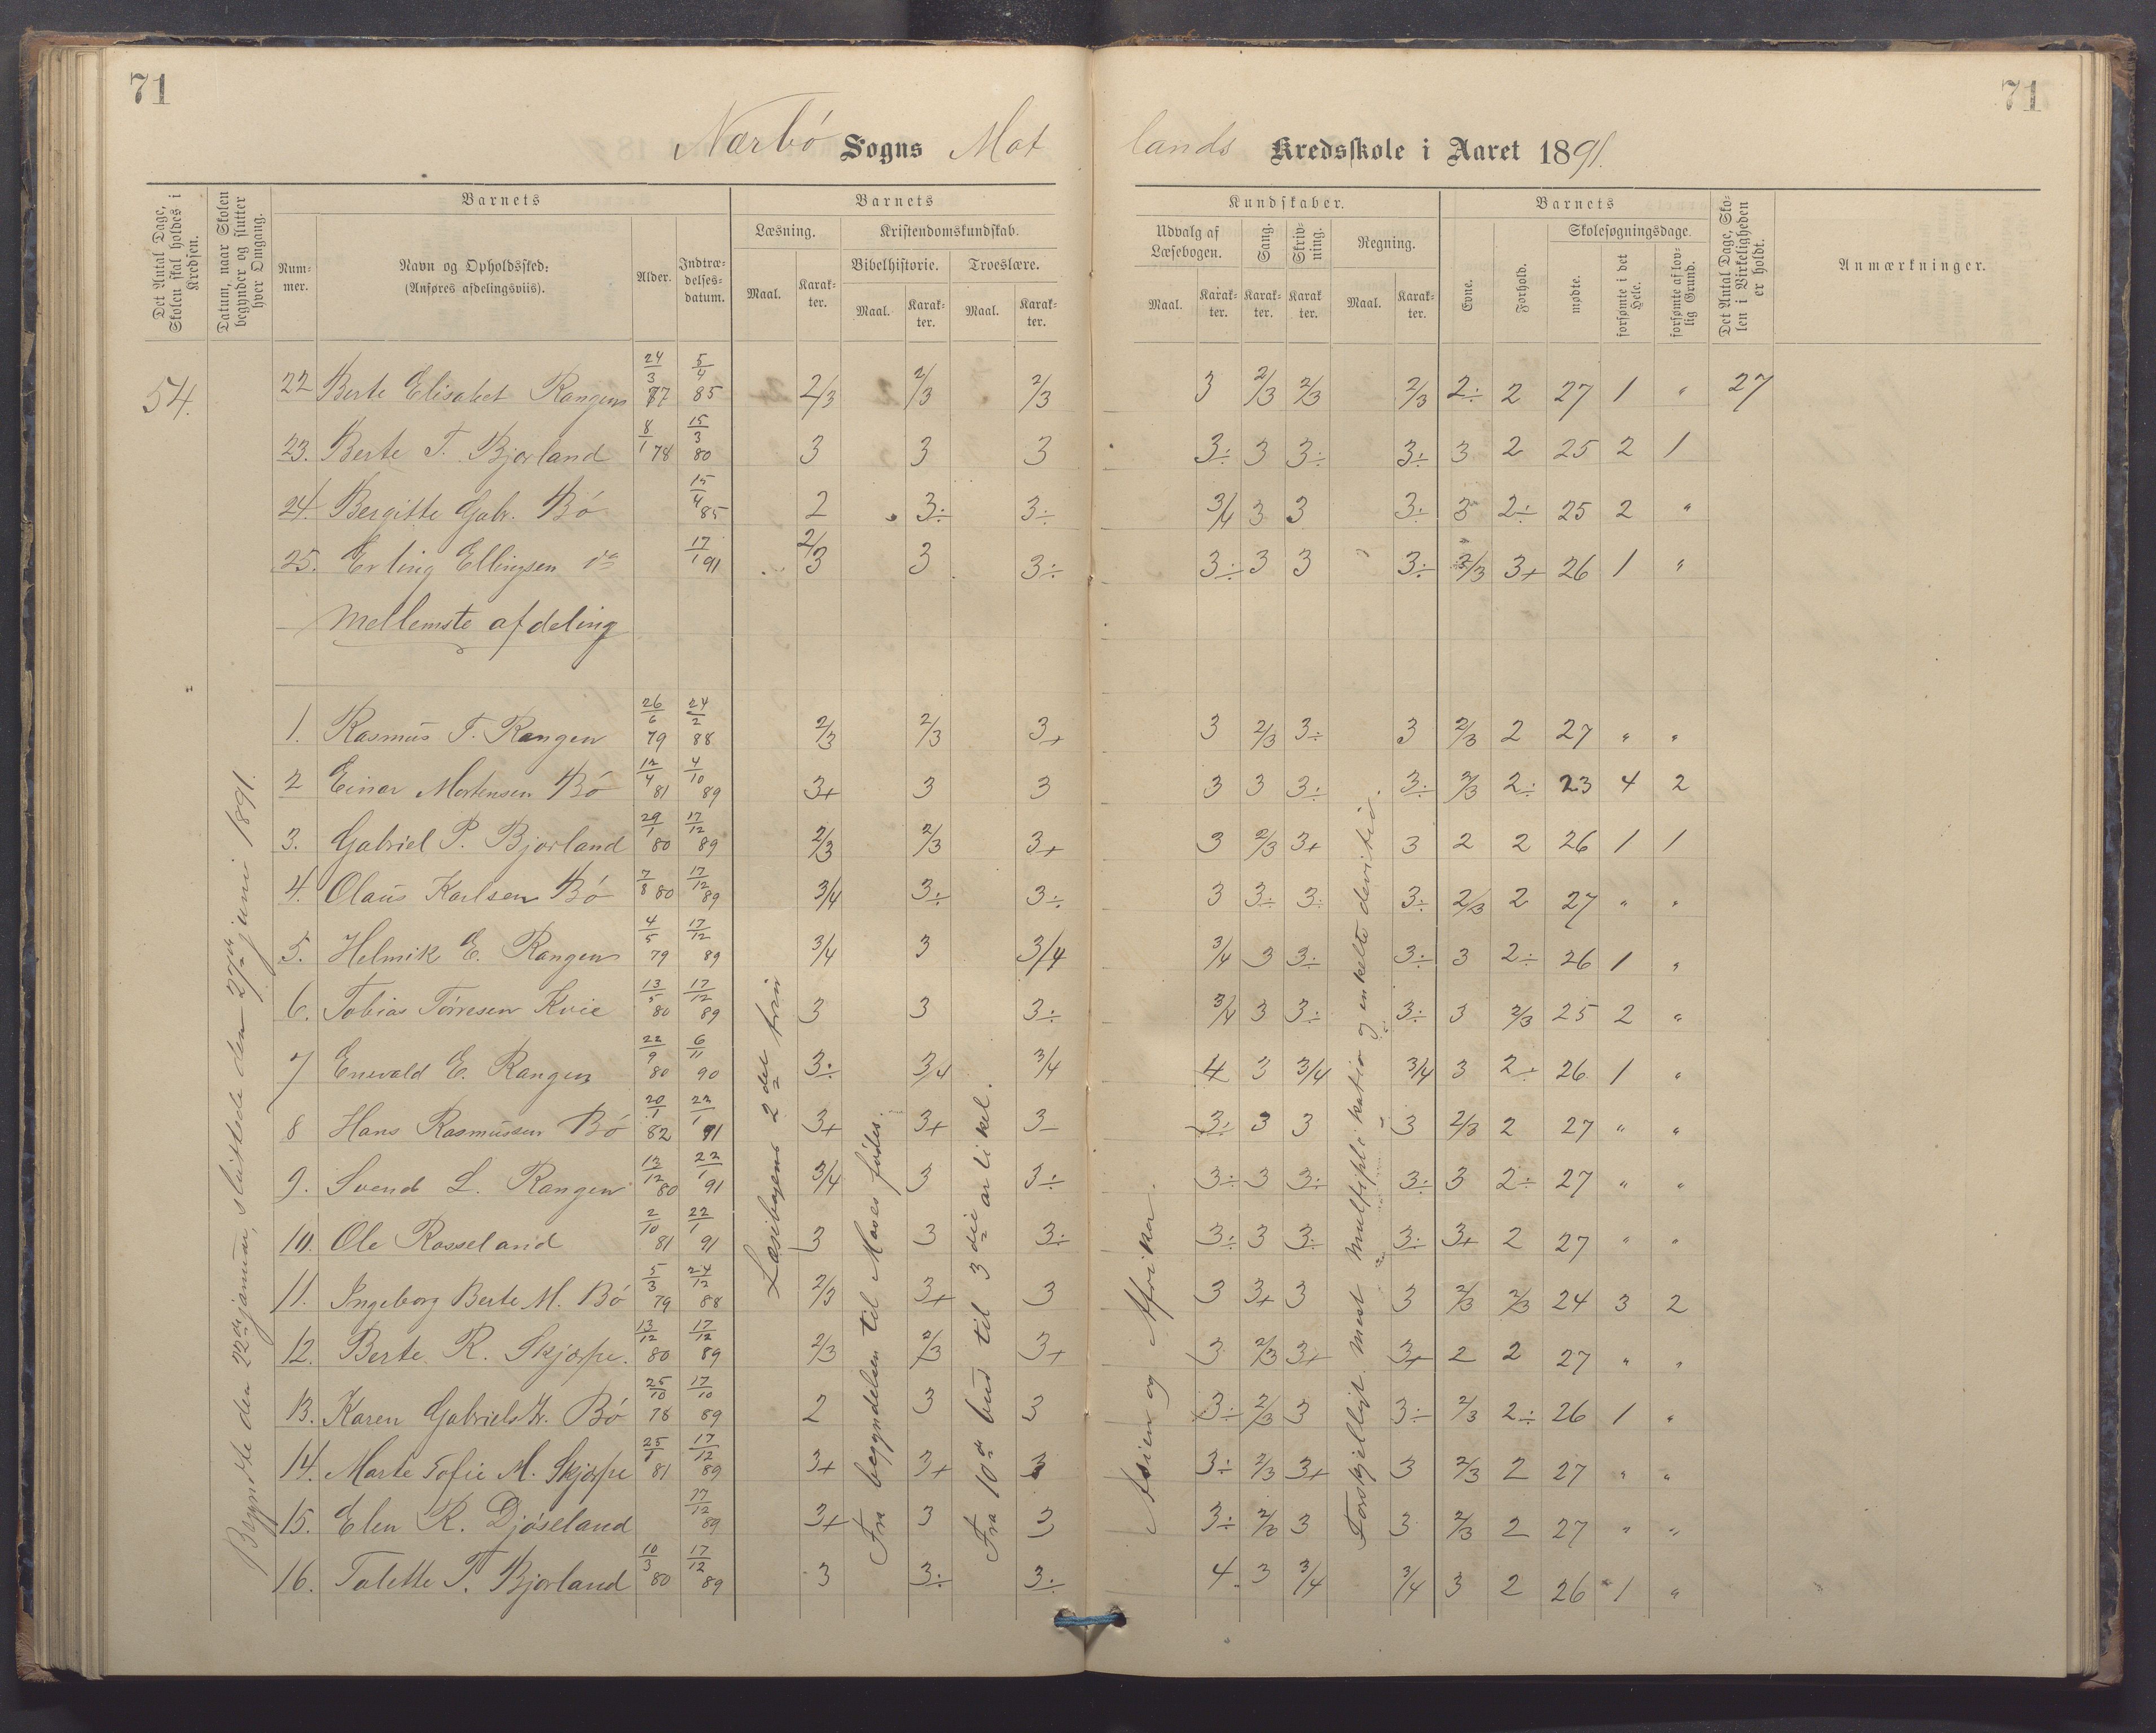 71
71
Nærbö Sogns Mot
lands Kredsskole i Aaret 1891.
Det Antal Dage, Skolen skal holdes i Kredsen.
Datum, naar Skolen begynder og slutter hver Omgang.
Barnets
Barnets
Kundskaber.
Barnets
Det Antal Dage, Skolen i Virkeligheden er holdt.
Anmærkninger.
Nummer.
Navn og Opholdssted:
(Anføres afdelingsviis).
Alder.
Indtrædelsesdatum.
Læsning.
Kristendomskundskab.
Bibelhistorie.
Troeslære.
Maal.
Karakter.
Maal.
Karakter.
Maal.
Karakter.
Udvalg af Læsebogen.
Sang.
Skrivning.
Regning.
Maal.
Karakter.
Karakter.
Karakter.
Maal.
Karakter.
Evne.
Forhold.
Skolesøgningsdage.
mødte.
forsømte i det Hele.
forsømte af lovlig Grund.
54.
22 Berte Elisabet Rangen 24/3 77 5/4 85 2/3 2/3 2/3 3 2/3 2/3 2/3 2÷ 2 27 1 " 27
23. Berte T. Bjorland 8/1 78 15/3 80 3 3 3 3÷ 3 3÷ 3÷ 3 2 25 2 1
24. Bergitte Gabr. Bö 15/4 85 2 3÷ 3÷ 3/4 3 3 3÷ 3 2÷ 25 2 "
25. Erling Ellingsen do 17/1 91 2/3 3 3÷ 3÷ 3 3 3÷ 2/3 3+ 26 1 "
Mellemste afdeling
1. Rasmus T. Rangen 26/6 79 24/2 88 2/3 2/3 3+ 3 2/3 3÷ 3 2/3 2 27 " "
2 Einar Mortensen Bö 12/4 81 4/10 89 3+ 3 3 3 3 3÷ 3÷ 2/3 2÷ 23 4 2
3. Gabriel P. Bjorland 29/1 80 17/12 89 2/3 2/3 3+ 3 2/3 3+ 3 2 2 26 1 1
4. Olaus Karlsen Bö 7/8 80 17/12 89 3/4 3÷ 3÷ 3 3÷ 3÷ 3÷ 2/3 2 27 " "
5. Helmik E. Rangen 4/5 79 17/12 89 3/4 3 3/4 3/4 3 3÷ 3÷ 3 2÷ 26 1 "
6. Tobias Törresen Kvie 13/5 80 17/12 89 3 3 3÷ 3/4 3 3÷ 3÷ 3 2/3 25 2 "
7 Enevald E. Rangen 22/9 80 6/11 90 3÷ 3/4 3/4 4 3 3/4 3/4 3 2÷ 26 1 "
8 Hans Rasmussen Bö 20/1 82 22/1 91 3+ 3+ 3 3÷ 3 3 3 2/3 2 27 " "
9. Svend L. Rangen 13/12 80 22/1 91 3/4 3 3÷ 3÷ 3 3÷ 3÷ 3 2÷ 27 " "
10. Ole Rosseland 2/10 81 22/1 91 3 3 3÷ 3÷ 3 3÷ 3÷ 3+ 2 27 " "
11. Ingeborg Berte M. Bö 5/3 79 24/12 88 2/3 3+ 3 3 3+ 3 3 2/3 2/3 24 3 2
12. Berte R. Skjærpe. 13/12 80 17/12 89 2/3 2/3 3+ 3 2/3 3+ 3+ 2 2 27 " "
13. Karen Gabrielstr. Bö 25/10 78 17/10 89 2 3 3 3÷ 2/3 3 3÷ 2/3 2÷ 26 1 "
14. Marte Tofie M. Skjærpe 25/1 81 17/12 89 3+ 3+ 3 3÷ 2/3 3+ 3 2/3 2 27 " "
15. Elen R. Djöseland 17/12 89 3+ 3 3 3÷ 2/3 3 3 2/3 2 27 " "
16. Talette T. Bjorland 10/3 80 17/12 89 3 3÷ 3÷ 4 3 3/4 3/4 3 2 26 1 "
Begyndte den 22de januar, sluttede den 27de juni 1891.
Læsebogens 2det trin
Fra begyndelsen til Moses födes.
Fra 10de bud til 3die artikel.
Asien og Afrika.
Forskjelligt. Mest multiplikation og enkelte